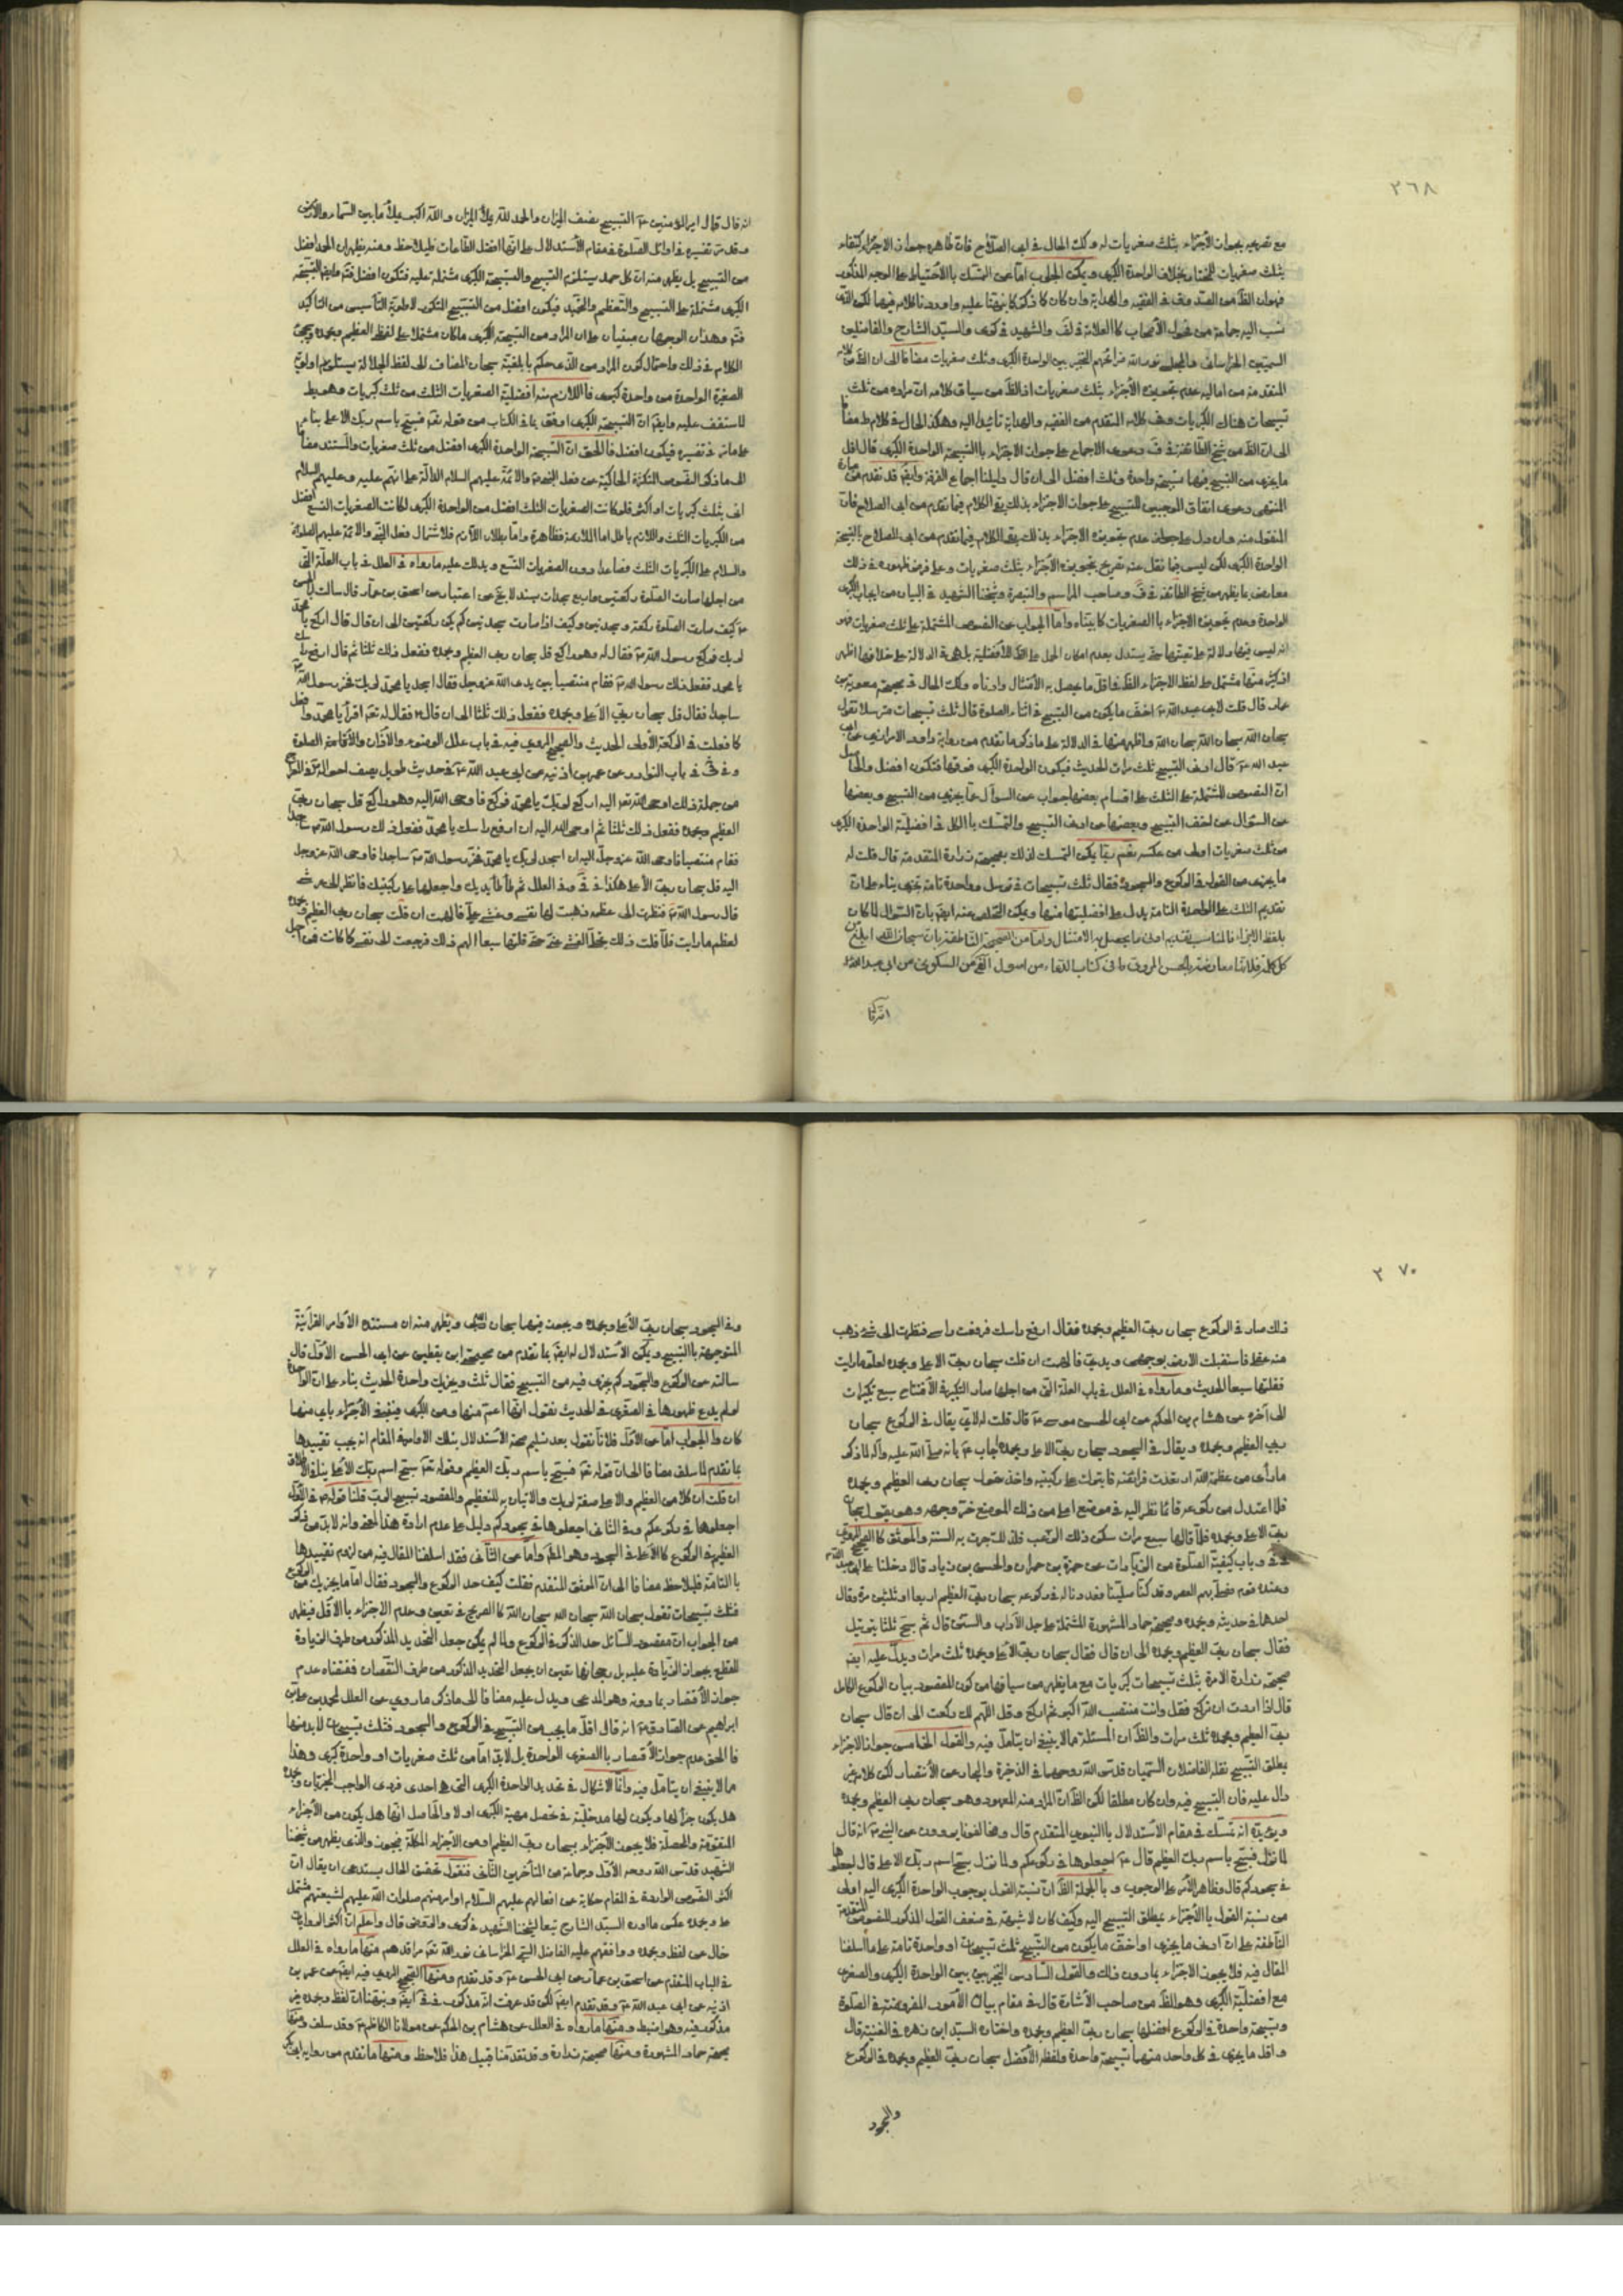 ٢٦٨
مع تصريحه بجواز الاجزاء بثلث صغريات له وكك الحال في ابي الصلاح فان ظاهره جواز الاجزاء كتفاء
بثلث صغريات للمختار بخلاف الواحدة الكبرى ويمكن الجواب اما عن التمسك بالاحتياط على الوجه المذكور
نسب اليه جماعة من فحول الاصحاب كالعلامة في لف والشهيد في كرى والسيد الشارح والفاضلين
المتقدمة من اماليه عدم تجويزه الاجزاء بثلث صغريات اذ الظ من سياق كلامه ان مراده من ثلث
تسبيحات هناك الكبريات وفي كلامه المتقدم من الفقيه والهداية تأييد اليه وهكذا الحال في كلام ط مضافا
الى ان الظ من شيخ الطائفة في ف دعوى الاجماع على جواز الاجزاء بالتسبيحة الواحدة الكبرى قال اقل
ما يجزى من التسبيح فيهما تسبيحة واحدة وثلث افضل الى ان قال دليلنا اجماع الفرقة وايضا قد تقدم من
المنتهى دعوى اتفاق الموجبين للتسبيح على جواز الاجزاء بذلك بقى الكلام فيما تقدم من ابي الصلاح فان
الواحدة الكبرى لكن ليس فيما نقل عنه تصريح بتجويزه الاجزاء بثلث صغريات وعلى فرض ظهوره في ذلك
معارض بما يظهر من شيخ الطائفة في ف وصاحب المراسم والتبصرة وشيخنا الشهيد في البيان من ايجاب الكبرى
الواحدة وعدم تجويزه الاجزاء بالصغريات كما بيناه واما الجواب عن النصوص المشتملة على ثلث صغريات فهو
انه ليس فيها دلالة على تعيينها حتى يستدل بعدم امكان الحمل على الافضلية بل هي في الدلالة على خلافها اظهر
اذ كثير منها مشتمل على لفظ الاجزاء الظ في اقل ما يحصل به الامتثال وادناه وكك الحال في صحيحة معوية بن
عمار قال قلت لابي عبد الله ع اخف ما يكون من التسبيح في اثناء الصلوة قال ثلث تسبيحات مترسلا تقول
سبحان الله سبحان الله سبحان الله واظهر منها في الدلالة على ما ذكر ما تقدم من رواية داود الابزاري عن ابي
عبد الله ع قال ادنى التسبيح ثلث مرات الحديث فيكون الواحدة الكبرى فوقها فتكون افضل والحاصل
ان النصوص المشتملة على الثلث على اقسام بعضها جواب عن السؤال عما يجزى من التسبيح وبعضها
عن السؤال عن اخف التسبيح وبعضها عن ادنى التسبيح والتمسك بالكل في افضلية الواحدة الكبرى
من ثلث صغريات اولى من عكسه نعم ربما يمكن التمسك لذلك بصحيحة زرارة المتقدمة قال قلت له
ما يجزى من القول في الركوع والسجود فقال ثلث تسبيحات في ترسل وواحدة تامة تجزى بناء على ان
تقديم الثلث على الواحدة التامة يدل على افضليتها منها ويمكن التخلص عنه ايضا بان السؤال لما كان
بلفظ الاجزاء فالمناسب تقديم ادنى ما يحصل به الامتثال واما من الصحيحة الناطقة بان سبحان الله ابلغ من
انه قال
انه قال قال امير المؤمنين ع التسبيح نصف الميزان والحمد لله يملأ الميزان والله اكبر يملأ ما بين السماء والارض
وقد مر تفسيره في اوائل الصلوة في مقام الاستدلال على انها افضل الطاعات فليلاحظ ومنه يظهر ان الحمد افضل
من التسبيح بل يظهر منه ان كل حمد يستلزم التسبيح والتسبيحة الكبرى مشتملة عليه فتكون افضل
الكبرى مشتملة على التسبيح والتعظيم والتحميد فيكون افضل من التسبيح المكرر لاولوية التأسيس من التاكيد
الكلام في ذلك واحتمال كون المراد من الذي حكم بابلغيته سبحان المضاف الى لفظ الجلالة يستلزم اولوية
الصغرى الواحدة من واحدة كبرى فاللازم منه افضلية الصغريات الثلث من ثلث كبريات وهو بط
لما ستقف عليه وايضا ان التسبيحة الكبرى اوفق بما في الكتاب من قوله تعم فسبح باسم ربك الاعلى بناء
على ما مر في تفسيره فيكون افضل فالحق ان التسبيحة الواحدة الكبرى افضل من ثلث صغريات والمستند مضافا
الى ما ذكر النصوص المتكثرة الحاكية عن فعل النبي ص والائمة عليهم السلام الدالة على انهم عليه وعليهم السلام
اتى بثلث كبريات او اكثر فلو كانت الصغريات الثلث افضل من الواحدة الكبرى لكانت الصغريات التسع افضل
من الكبريات الثلث واللازم باطل اما الملازمة فظاهرة واما بطلان اللازم فلاشتمال فعل النبي والائمة عليهم الصلوة
والسلام على الكبريات الثلث فصاعدا دون الصغريات التسع ويدلك عليه ما رواه في العلل في باب العلة التي
من اجلها صارت الصلوة ركعتين واربع سجدات بسند لا يخ عن اعتبار عن اسحق بن عمار قال سالت ابا الحسن
ع كيف صارت الصلوة ركعة وسجدتين وكيف اذا صارت سجدتين لم يكن ركعتين الى ان قال قال اركع يا محمد
لربك فركع رسول الله ص فقال له وهو راكع قل سبحان ربي العظيم وبحمده ففعل ذلك ثلثا ثم قال ارفع راسك
يا محمد ففعل ذلك رسول الله ص فقام منتصبا بين يدي الله عز وجل فقال اسجد يا محمد لربك فخر رسول الله ص
ساجدا فقال قل سبحان ربي الاعلى وبحمده ففعل ذلك ثلثا الى ان قال فقال له نعم اقرأ يا محمد وافعل
كما فعلت في الركعة الاولى الحديث والصحيح المروي فيه في باب علل الوضوء والاذان والاقامة الصلوة
وفي في في باب النوادر عن عمر بن اذينه عن ابي عبد الله ع في حديث طويل يصف احواله ص في المعراج
من جملة ذلك اوحى الله تعم اليه اركع لربك يا محمد فركع فاوحى الله اليه وهو راكع قل سبحان ربي
العظيم وبحمده ففعل ذلك ثلثا ثم اوحى الله اليه ان ارفع راسك يا محمد ففعل ذلك رسول الله ص
فقام منتصبا فاوحى الله عز وجل اليه ان اسجد لربك يا محمد فخر رسول الله ص ساجدا فاوحى الله عز وجل
اليه قل سبحان ربي الاعلى هكذا في في وفي العلل ثم طأطأ يديك واجعلها على ركبتيك فانظر الى عرشي
قال رسول الله ص فنظرت الى عظمة ذهبت لها نفسي وغشي علي فالهمت ان قلت سبحان ربي العظيم وبحمده
لعظم ما رايت فلما قلت ذلك تجلى الغشي عني حتى قلتها سبعا الهم ذلك فرجعت الى نفسي كما كانت فمن اجل
٢٧٠
ذلك صار في الركوع سبحان ربي العظيم وبحمده فقال ارفع راسك فرفعت راسي فنظرت الى شيء ذهب
منه عقلي فاستقبلت الارض بوجهي ويدي فالهمت ان قلت سبحان ربي الاعلى وبحمده لعلو ما رايت
فقلتها سبعا الحديث وما رواه في العلل في باب العلة التي من اجلها صار التكبير في الافتتاح سبع تكبيرات
الى آخره عن هشام بن الحكم عن ابي الحسن موسى ع قال قلت لاي يقال في الركوع سبحان
ربي العظيم وبحمده ويقال في السجود سبحان ربي الاعلى وبحمده اجاب ع بانه صلى الله عليه وآله لما ذكر
ما رأى من عظمة الله ارتعدت فرائصه فابترك على ركبتيه واخذ يقول سبحان ربي العظيم وبحمده
فلما اعتدل من ركوعه قائما نظر اليه في موضع اعلى من ذلك الموضع خر وجهه وهو يقول سبحان
ربي الاعلى وبحمده فلما قالها سبع مرات سكن ذلك الرعب فلذلك جرت به السنة والموثق كالصحيح المروي
في باب كيفية الصلوة من الزيادات عن حمزة بن حمران والحسن بن زياد قالا دخلنا على ابي عبد الله ع
وعنده قوم فصلى بهم العصر وقد كنا صلينا فعددنا له في ركوعه سبحان ربي العظيم اربعا او ثلثين مرة وقال
احدهما في حديثه وبحمده وصحيحة حماد المشهورة المشتملة على جل الآداب والسنن قال ثم سبح ثلثا بترتيل
فقال سبحان ربي العظيم وبحمده الى ان قال فقال سبحان ربي الاعلى وبحمده ثلث مرات ويدل عليه ايضا
صحيحة زرارة الآمرة بثلث تسبيحات كبريات مع ما يظهر من سياقها من كون المقصود بيان الركوع الكامل
قال اذا اردت ان تركع فقل وانت منتصب الله اكبر ثم اركع وقل اللهم لك ركعت الى ان قال سبحان
ربي العظيم وبحمده ثلث مرات والظ ان المسئلة مما لا ينبغي ان يتأمل فيه والقول الخامس جواز الاجزاء
بمطلق التسبيح نقله الفاضلان السميان قدس الله روحهما في الذخيرة والبحار عن الانتصار لكن كلامه غير
دال عليه فان التسبيح فيه وان كان مطلقا لكن الظ ان المراد منه المعهود وهو سبحان ربي العظيم وبحمده
ويؤيده انه تمسك في مقام الاستدلال بالنبوي المتقدم قال ومخالفونا يروون عن النبي ص انه قال
لما نزل فسبح باسم ربك العظيم قال ع اجعلوها في ركوعكم ولما نزل سبح اسم ربك الاعلى قال اجعلوها
في سجودكم قال وظاهر الامر على الوجوب وبالجملة الظ ان نسبة القول بوجوب الواحدة الكبرى اليه اولى
من نسبة القول بالاجزاء بمطلق التسبيح اليه وكيف كان لا شبهة في ضعف القول المذكور للنصوص المتقدمة
الناطقة على ان ادنى ما يجزى او اخف ما يكون من التسبيح ثلث تسبيحات او واحدة تامة على ما اسلفنا
المقال فيه فلا يجوز الاجزاء بما دون ذلك والقول السادس التخيير بين الواحدة الكبرى والصغرى
مع افضلية الكبرى وهو الظ من صاحب الاشارة قال في مقام بيان الامور المفروضة في الصلوة
وتسبيحة واحدة في الركوع افضلها سبحان ربي العظيم وبحمده واختاره السيد ابن زهرة في الغنية قال
واقل ما يجزى في كل واحد منهما تسبيحة واحدة ولفظه الافضل سبحان ربي العظيم وبحمده في الركوع
والسجود
وفي السجود سبحان ربي الاعلى وبحمده ويجوز فيهما سبحان الله ويظهر منه ان مستنده الاوامر القرآنية
المتوجهة بالتسبيح ويمكن الاستدلال له ايضا بما تقدم من صحيحة ابن يقطين عن ابي الحسن الاول قال
سالته عن الركوع والسجود كم يجزى فيه من التسبيح فقال ثلث ويجزيك واحدة الحديث بناء على ان الواحدة
لو لم يدع ظهورها في الصغرى في الحديث نقول انها اعم منها ومن الكبرى فينبغي الاجزاء باي منهما
كان والجواب اما عن الاول فلانا نقول بعد تسليم صحة الاستدلال بتلك الاوامر في المقام انه يجب تقييدها
بما تقدم لما سلف مضافا الى ان قوله تعم فسبح باسم ربك العظيم وقوله تعم سبح اسم ربك الاعلى ينافي الاطلاق
ان قلت ان كلا من العظيم والاعلى صفة لربك والاتيان به للتعظيم والمقصود تسبيح الرب قلنا قوله ص في الاول
اجعلوها في ركوعكم وفي الثاني اجعلوها في سجودكم دليل على عدم ارادة هذا المعنى وانه لا بد من ذكر
العظيم في الركوع كالاعلى في السجود وهو المط واما عن الثاني فقد اسلفنا المقال فيه من لزوم تقييدها
بالتامة فليلاحظ مضافا الى ان الموثق المتقدم فقلت كيف حد الركوع والسجود فقال اما ما يجزيك من الركوع
فثلث تسبيحات تقول سبحان الله سبحان الله سبحان الله كالصريح في تعيين وعدم الاجزاء بالاقل فيظهر
من الجواب ان مقصود السائل حد الذكر في الركوع ولما لم يكن جعل التحديد المذكور من طرف الزيادة
للقطع بجواز الزيادة عليه بل رجحانها تعين ان يجعل التحديد المذكور من طرف النقصان فمقتضاه عدم
جواز الاقتصار بما دونه وهو المدعى ويدل عليه مضافا الى ما ذكر ما روي عن العلل لمحمد بن علي بن
ابراهيم عن الصادق ع انه قال اقل ما يجب من التسبيح في الركوع والسجود فثلث تسبيحات لا بد منها
فالحق عدم جواز الاقتصار بالصغرى الواحدة بل لا بد اما من ثلث صغريات او واحدة كبرى وهذا
مما لا ينبغي ان يتأمل فيه وانما الاشكال في تحديد الواحدة الكبرى التي هي احدى فردي الواجب المخير ان وبحمده
هل يكون جزأ لها ويكون لها مدخلية في تحصل مهية الكبرى او لا والحاصل انها هل يكون من الاجزاء
المقومة والمحصلة فلا يجوز الاجزاء بسبحان ربي العظيم او من الاجزاء المكملة فيجوز والذي يظهر من شيخنا
الشهيد قدس الله روحه الاول وجماعة من المتأخرين الثاني فنقول تحقيق الحال يستدعي ان يقال ان
اكثر النصوص الواردة في المقام حكاية عن افعالهم عليهم السلام او امرهم صلوات الله عليهم لشيعتهم مشتمل
على وبحمده عكس ما اورده السيد الشارح تبعا لشيخنا الشهيد في كرى والمحقق قال واعلم ان اكثر الروايات
خال عن لفظ وبحمده ووافقهم عليه الفاضل السمي الخراساني نور الله تعم مراقدهم منها ما رواه في العلل
في الباب المتقدم عن اسحق بن عمار عن ابي الحسن ع وقد تقدم ومنها الصحيح المروي فيه ايضا عن عمر بن
اذينه عن ابي عبد الله ع وقد تقدم ايضا لكن قد عرفت انه مذكور في في ايضا ونبهنا ان لفظ وبحمده غير
مذكور فيه وهو اضبط ومنها ما رواه في العلل عن هشام بن الحكم عن مولانا الكاظم ع وقد سلف ومنها
صحيحة حماد المشهورة ومنها صحيحة زرارة وقد تقدمتا قبيل هذا فلاحظ ومنها ما تقدم من رواية ابي بكر